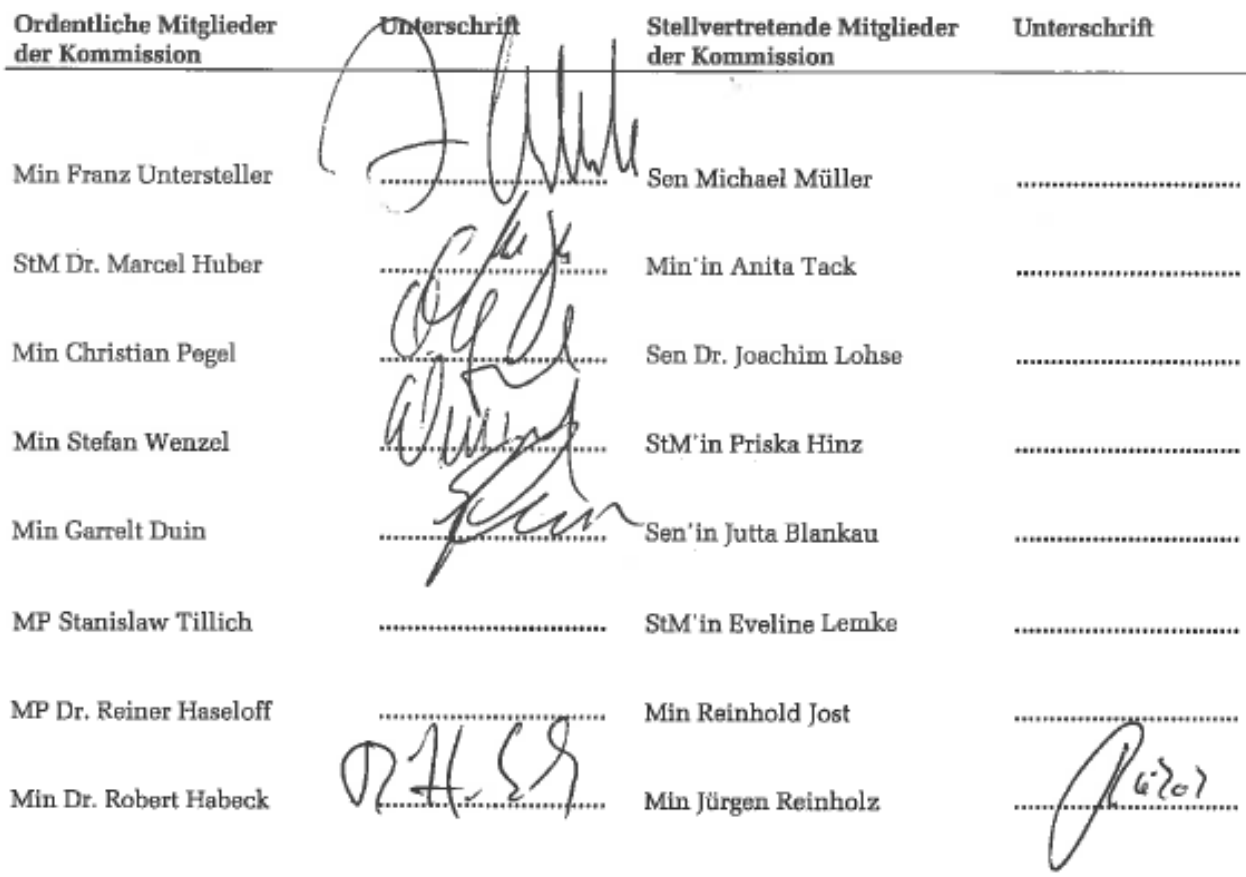 Ordentliche Mitglieder Unterschrift Stellvertretende Mitglieder Unterschrift
der Kommission der Kommission
Min Franz Untersteller Sen Michael Müller
StM Dr. Marcel Huber Min'in Anita Tack
Min Christian Pegel Sen Dr. Joachim Lohse
Min Stefan Wenzel StM'in Priska Hinz
Min Garrelt Duin Sen'in Jutta Blankau
MP Stanislaw Tillich StM'in Eveline Lemke
MP Dr. Reiner Haseloff Min Reinhold Jost
Min Dr. Robert Habeck Min Jürgen Reinholz